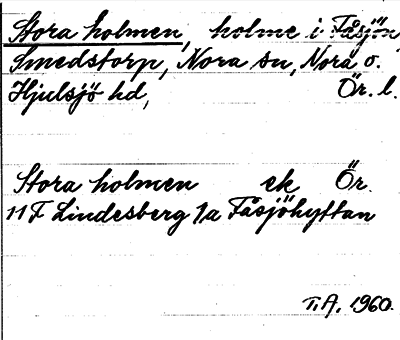 Stora holmen, holme i Fåsjön,
Smedstorp, Nora sn, Nora o.
Hjulsjö hd, Ör. l.
Stora holmen ek Ör.
11 F Lindesberg 1/a Fåsjöhyttan
T.A. 1960.